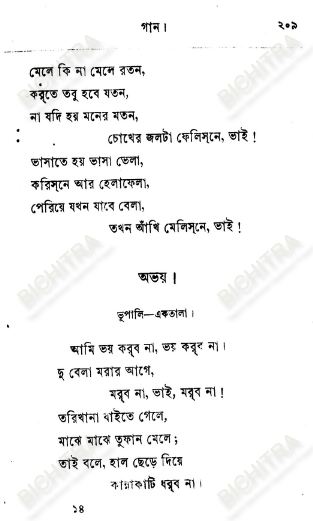 গান।
২০৯
মেলে কি না মেলে রতন,
কর্‌তে তবু হবে যতন,
না যদি হয় মনের মতন,
চোখের জলটা ফেলিস্‌নে, ভাই!
ভাসাতে হয় ভাসা ভেলা,
করিস্‌নে আর হেলাফেলা,
পেরিয়ে যখন যাবে বেলা,
তখন আঁখি মেলিস্‌নে, ভাই!
অভয়।
ভূপালি—একতালা।
আমি ভয় করব না, ভয় করব না।
দু বেলা মরার আগে,
মর্‌ব না, ভাই, মর্‌ব না!
তরিখানা বাইতে গেলে,
মাঝে মাঝে তুফান মেলে;
তাই বলে, হাল ছেড়ে দিয়ে
কান্নাকাটি ধর্‌ব না।
১৪
BICHITRA